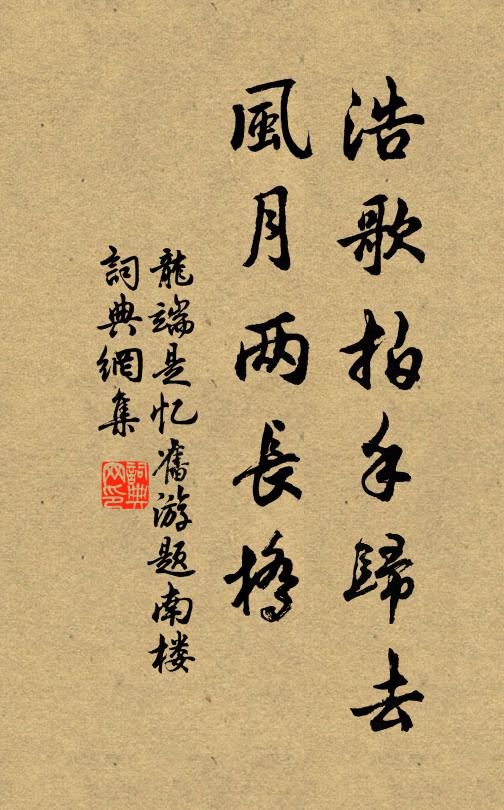 浩歌拍手歸去
風月两長橋
龍端是忆舊游題南楼
詞典網集
詞典网印